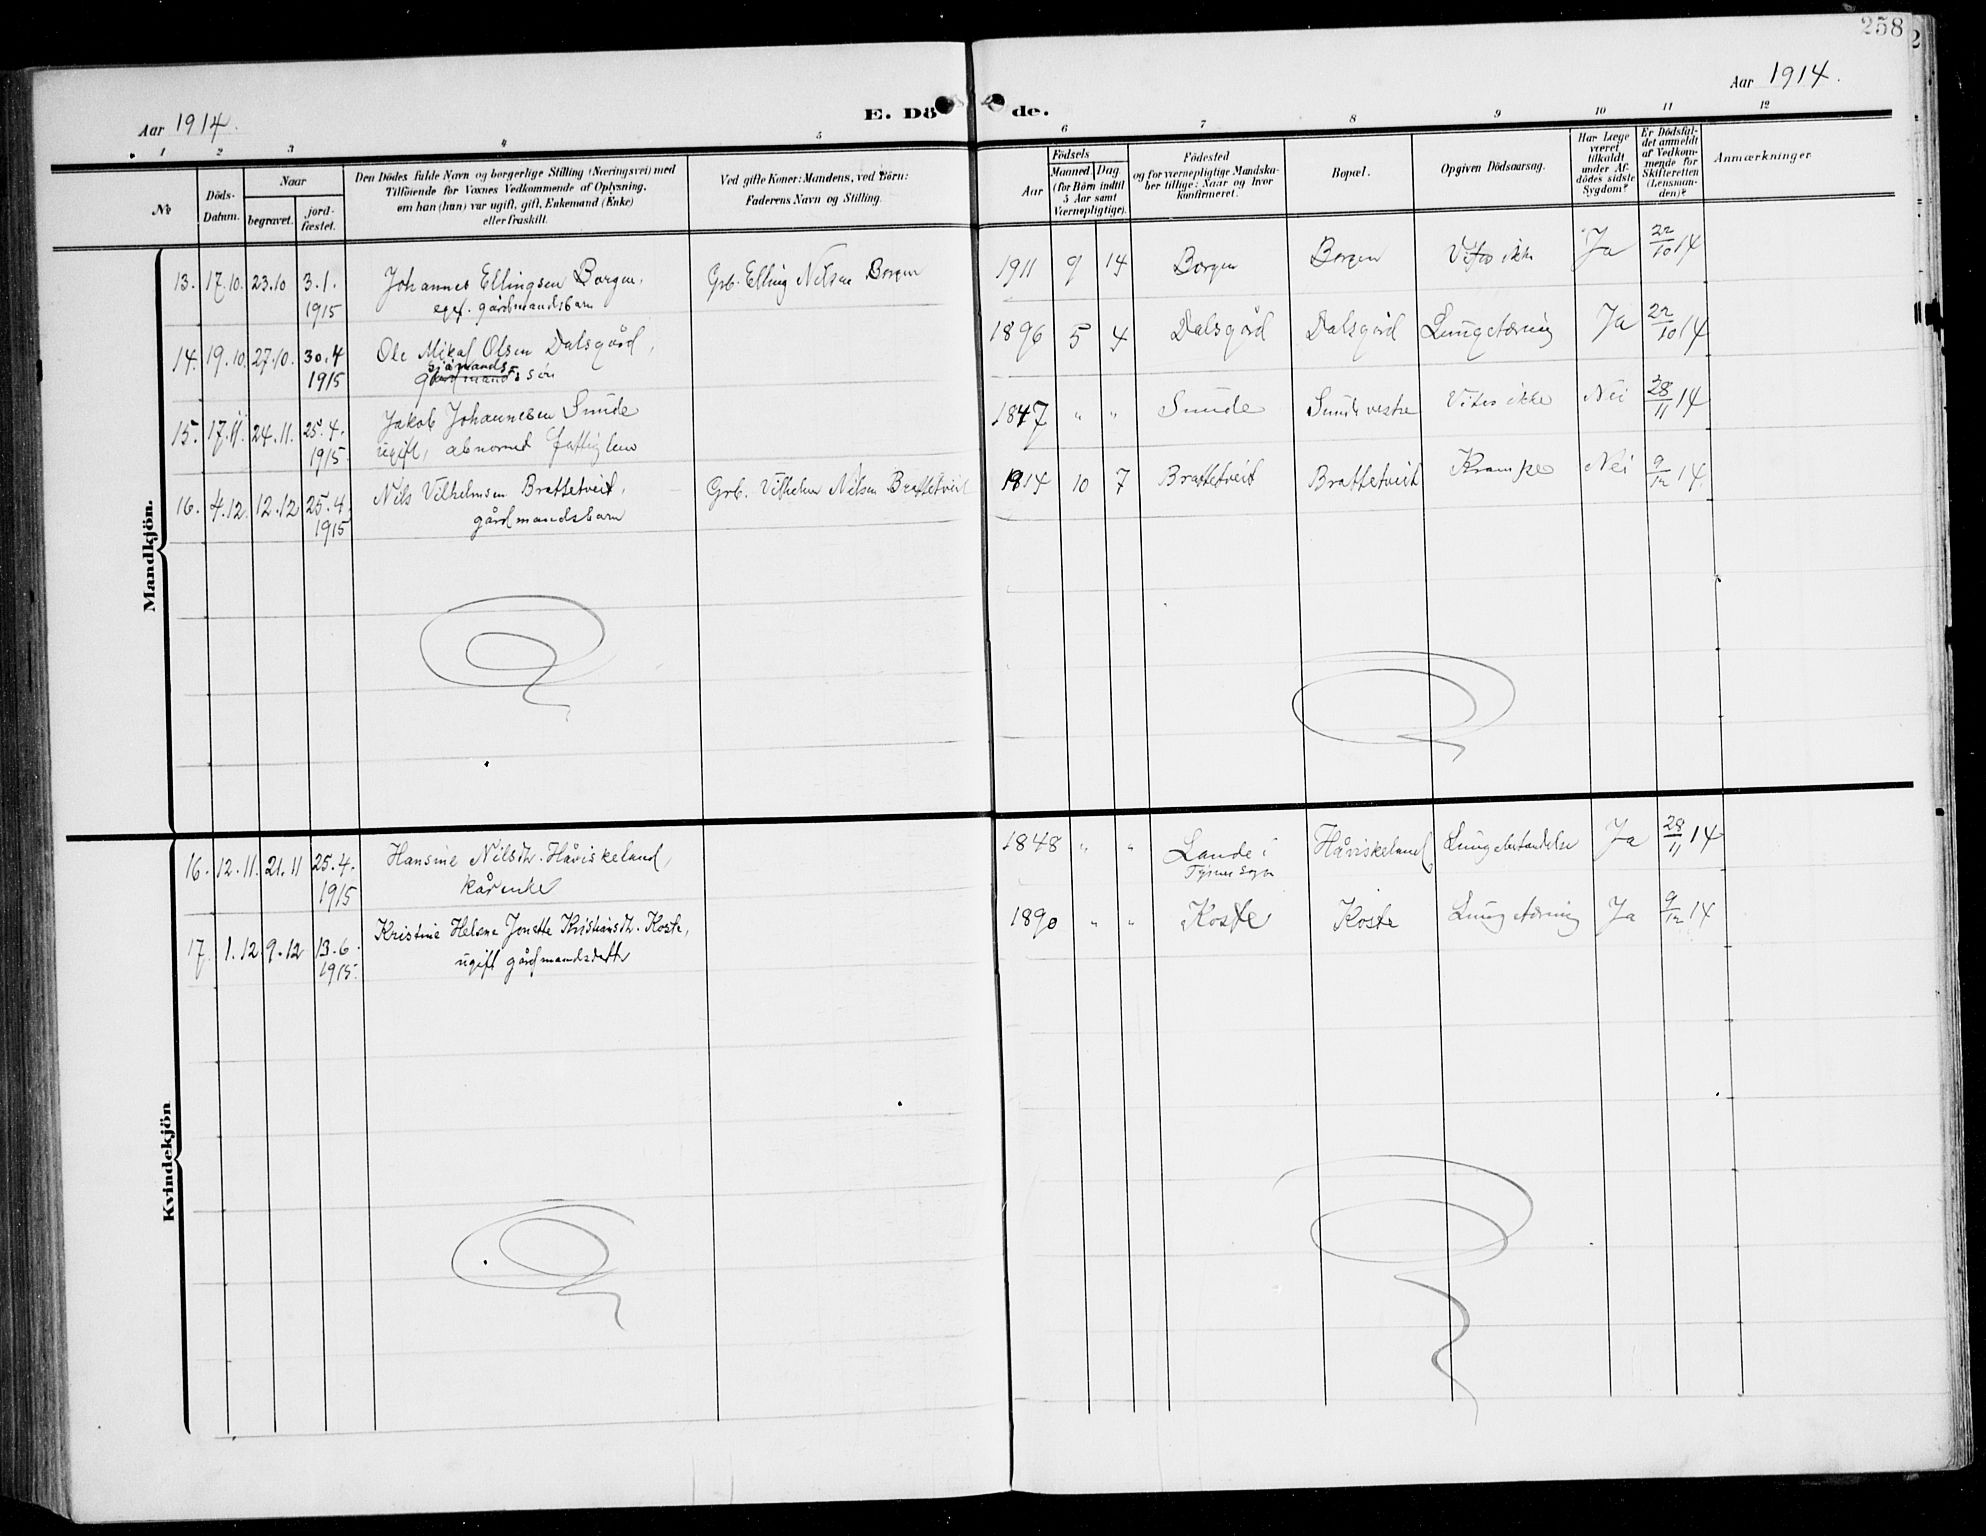 258
Aar 1914.
E. Dö de.
Aar 1914.
1 2 3 4 5 6 7 8 9 10 11 12
No
Döds-
Datum.
Naar
begravet.
jord-
fæstet.
Den Dödes fulde Navn og borgerlige Stilling (Næringsvei) med
Tilföiende for Voxnes Vedkommende af Oplysning,
om han (hun) var ugift, gift, Enkemand (Enke)
eller fraskilt.
Ved gifte Koner: Mandens, ved Börn:
Faderens Navn og Stilling.
Födsels
Aar
Maaned Dag
(for Börn indtil
5 Aar samt
Værnepligtige).
Födested
og for værnepligtige Mandska-
ber tillige: Naar og hvor
konfirmeret.
Bopæl.
Opgiven Dödsaarsag.
Har Læge
været
tilkaldt
under Af-
dödes sidste
Sygdom?
Er Dödsfal-
det anmeldt
af Vedkom-
mende for
Skifteretten
(Lensman-
den)?
Anmærkninger
Mandkjön.
13. 17.10. 23.10 3.1. Johannes Ellingsen Borgen, Grb. Elling Nilsen Borgen 1911 9 14 Borgen Borgen Vites ikke Ja 22/10 14
1915 gårdmandsbarn
14. 19.10. 27.10. 30.4 Ole Mikal Olsen Dalsgård, 1896 5 4 Dalsgård Dalsgård Lungetæring Ja 22/10 14
1915 gårdmandssön
15. 17.11. 24.11. 25.4. Jakob Johannesen Sunde 1847 " " Sunde Sunde vestre Vites ikke Nei 28/11 14
1915. ugift, abnormd fattiglem
16. 4.12. 12.12 25.4. Nils Vilhelmsen Brattetveit, Grb. Vilhelm Nilsen Brattetveit 1914 10 7 Brattetveit Brattetveit Krampe Nei 9/12 14.
1915 gårdmandsbarn
Kvindekjön
16. 12.11. 21.11 25.4. Hansine Nilsdtr. Håviskeland, 1848 " " Lande i Håviskeland Lungebetændelse Ja 28/11 14
1915 kårenke Tysnes sogn
17. 1.12 9.12 13.6. Kristine Helene Jonette Kristiansdtr. Koste, 1890 " " Koste Koste Lungetæring Ja 9/12 14
1915. ugift gårdmandsdatter